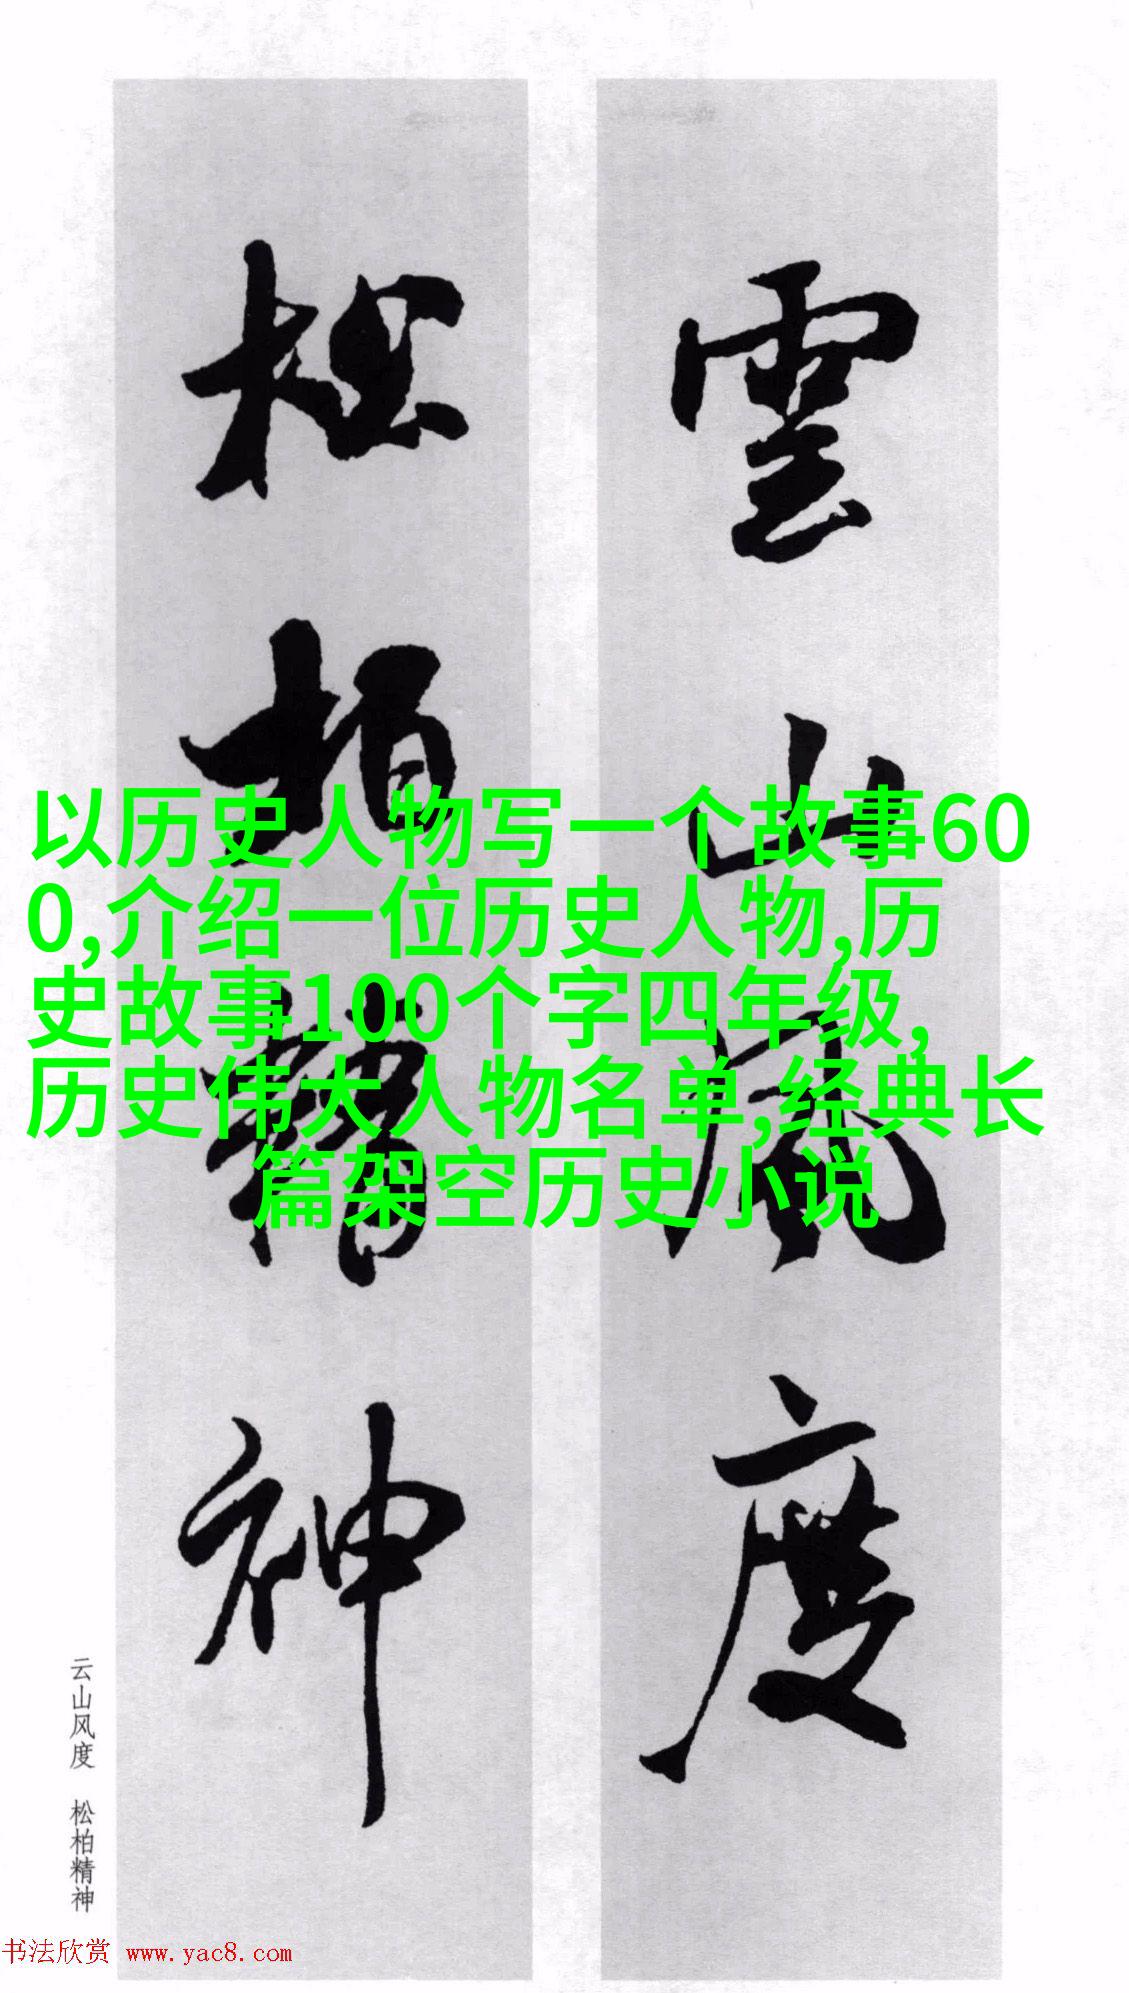 雲山風度
松柏精神
以历史人物写一个故事60
0,介绍一位历史人物,历
史故事100个字四年级,
历史伟大人物名单,经典长
篇架空历史小说
云山风度 松柏精神
书法欣赏 www.yac8.com